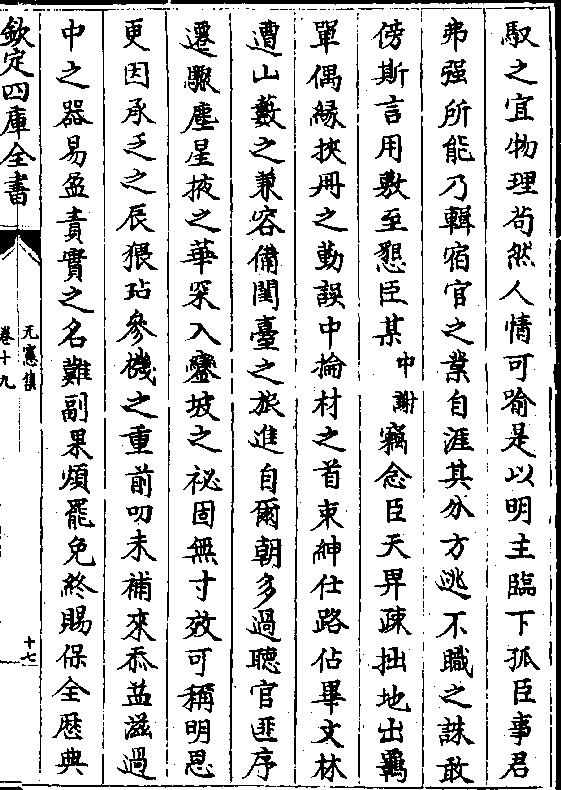 馭之宜物理苟然人情可喻是以明主臨下孤臣事君
弗强所能乃輯宿官之業自涯其分方逃不職之誅敢
傍斯言用敷至懇臣某中謝竊念臣天畀疎拙地出羈
單偶緣挾冊之勤誤中掄材之首束紳仕路佔畢文林
遭山藪之兼容備闈臺之旅進自爾朝多過聽官匪序
遷驟塵星掖之華罙入鑾坡之祕固無寸效可稱明恩
更因承乏之辰猥玷參機之重前叨未補來忝益滋過
中之器易盈責實之名難副果煩罷免終賜保全歴典
欽定四庫全書
元憲集
卷十九
十七